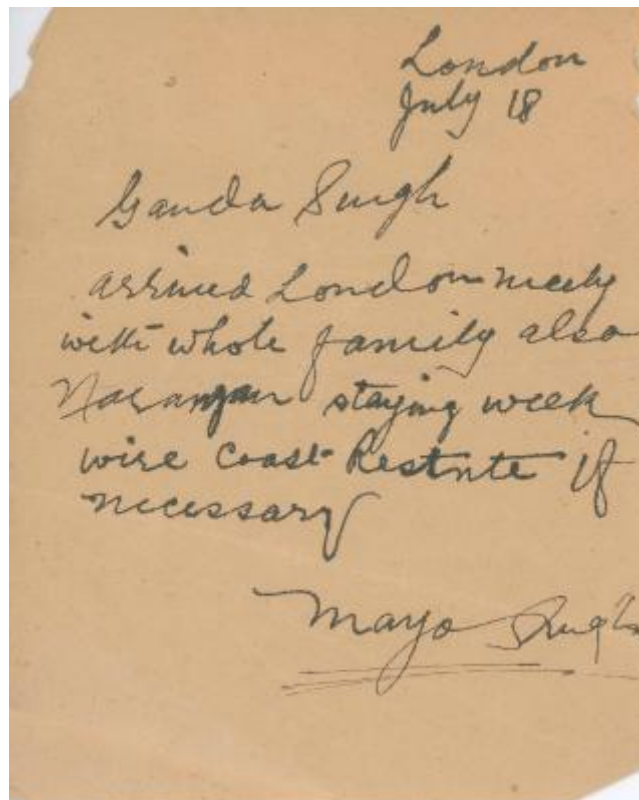 London
July 18
Ganda Singh
arrived London
with whole family also
Naranjan staying week
wire coast if
necessary
Mayo Singh